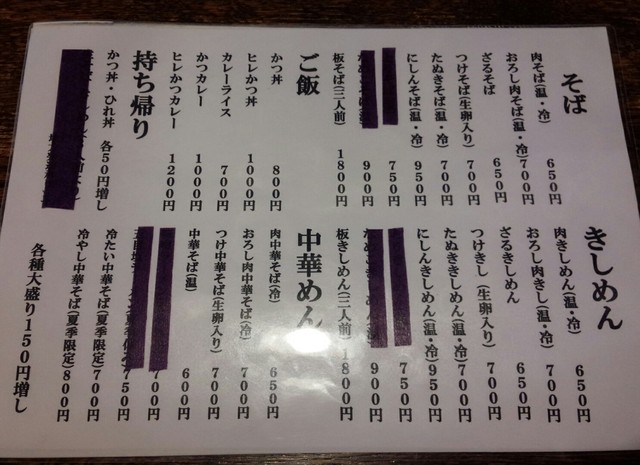 そば
肉そば(温・冷) 650円
おろし肉そば(温・冷) 700円
ざるそば 650円
つけそば(生卵入り) 700円
たぬきそば(温・冷) 700円
にしんそば(温・冷) 950円
750円
900円
板そば(三人前) 1800円
ご飯
かつ丼 800円
ヒレかつ丼 1000円
カレーライス 700円
かつカレー 1000円
ヒレかつカレー 1200円
持ち帰り
かつ丼・ひれ丼 各50円増し
きしめん
肉きしめん(温・冷) 650円
おろし肉きし(温・冷) 700円
ざるきしめん 650円
つけきし(生卵入り) 700円
たぬききしめん(温・冷) 700円
にしんきしめん(温・冷) 950円
750円
900円
板きしめん(三人前) 1800円
中華めん
肉中華そば(冷) 650円
おろし肉中華そば(冷) 700円
つけ中華そば(生卵入り) 700円
中華そば(温) 600円
700円
750円
冷たい中華そば(夏季限定) 700円
冷やし中華そば(夏季限定) 800円
各種大盛り150円増し